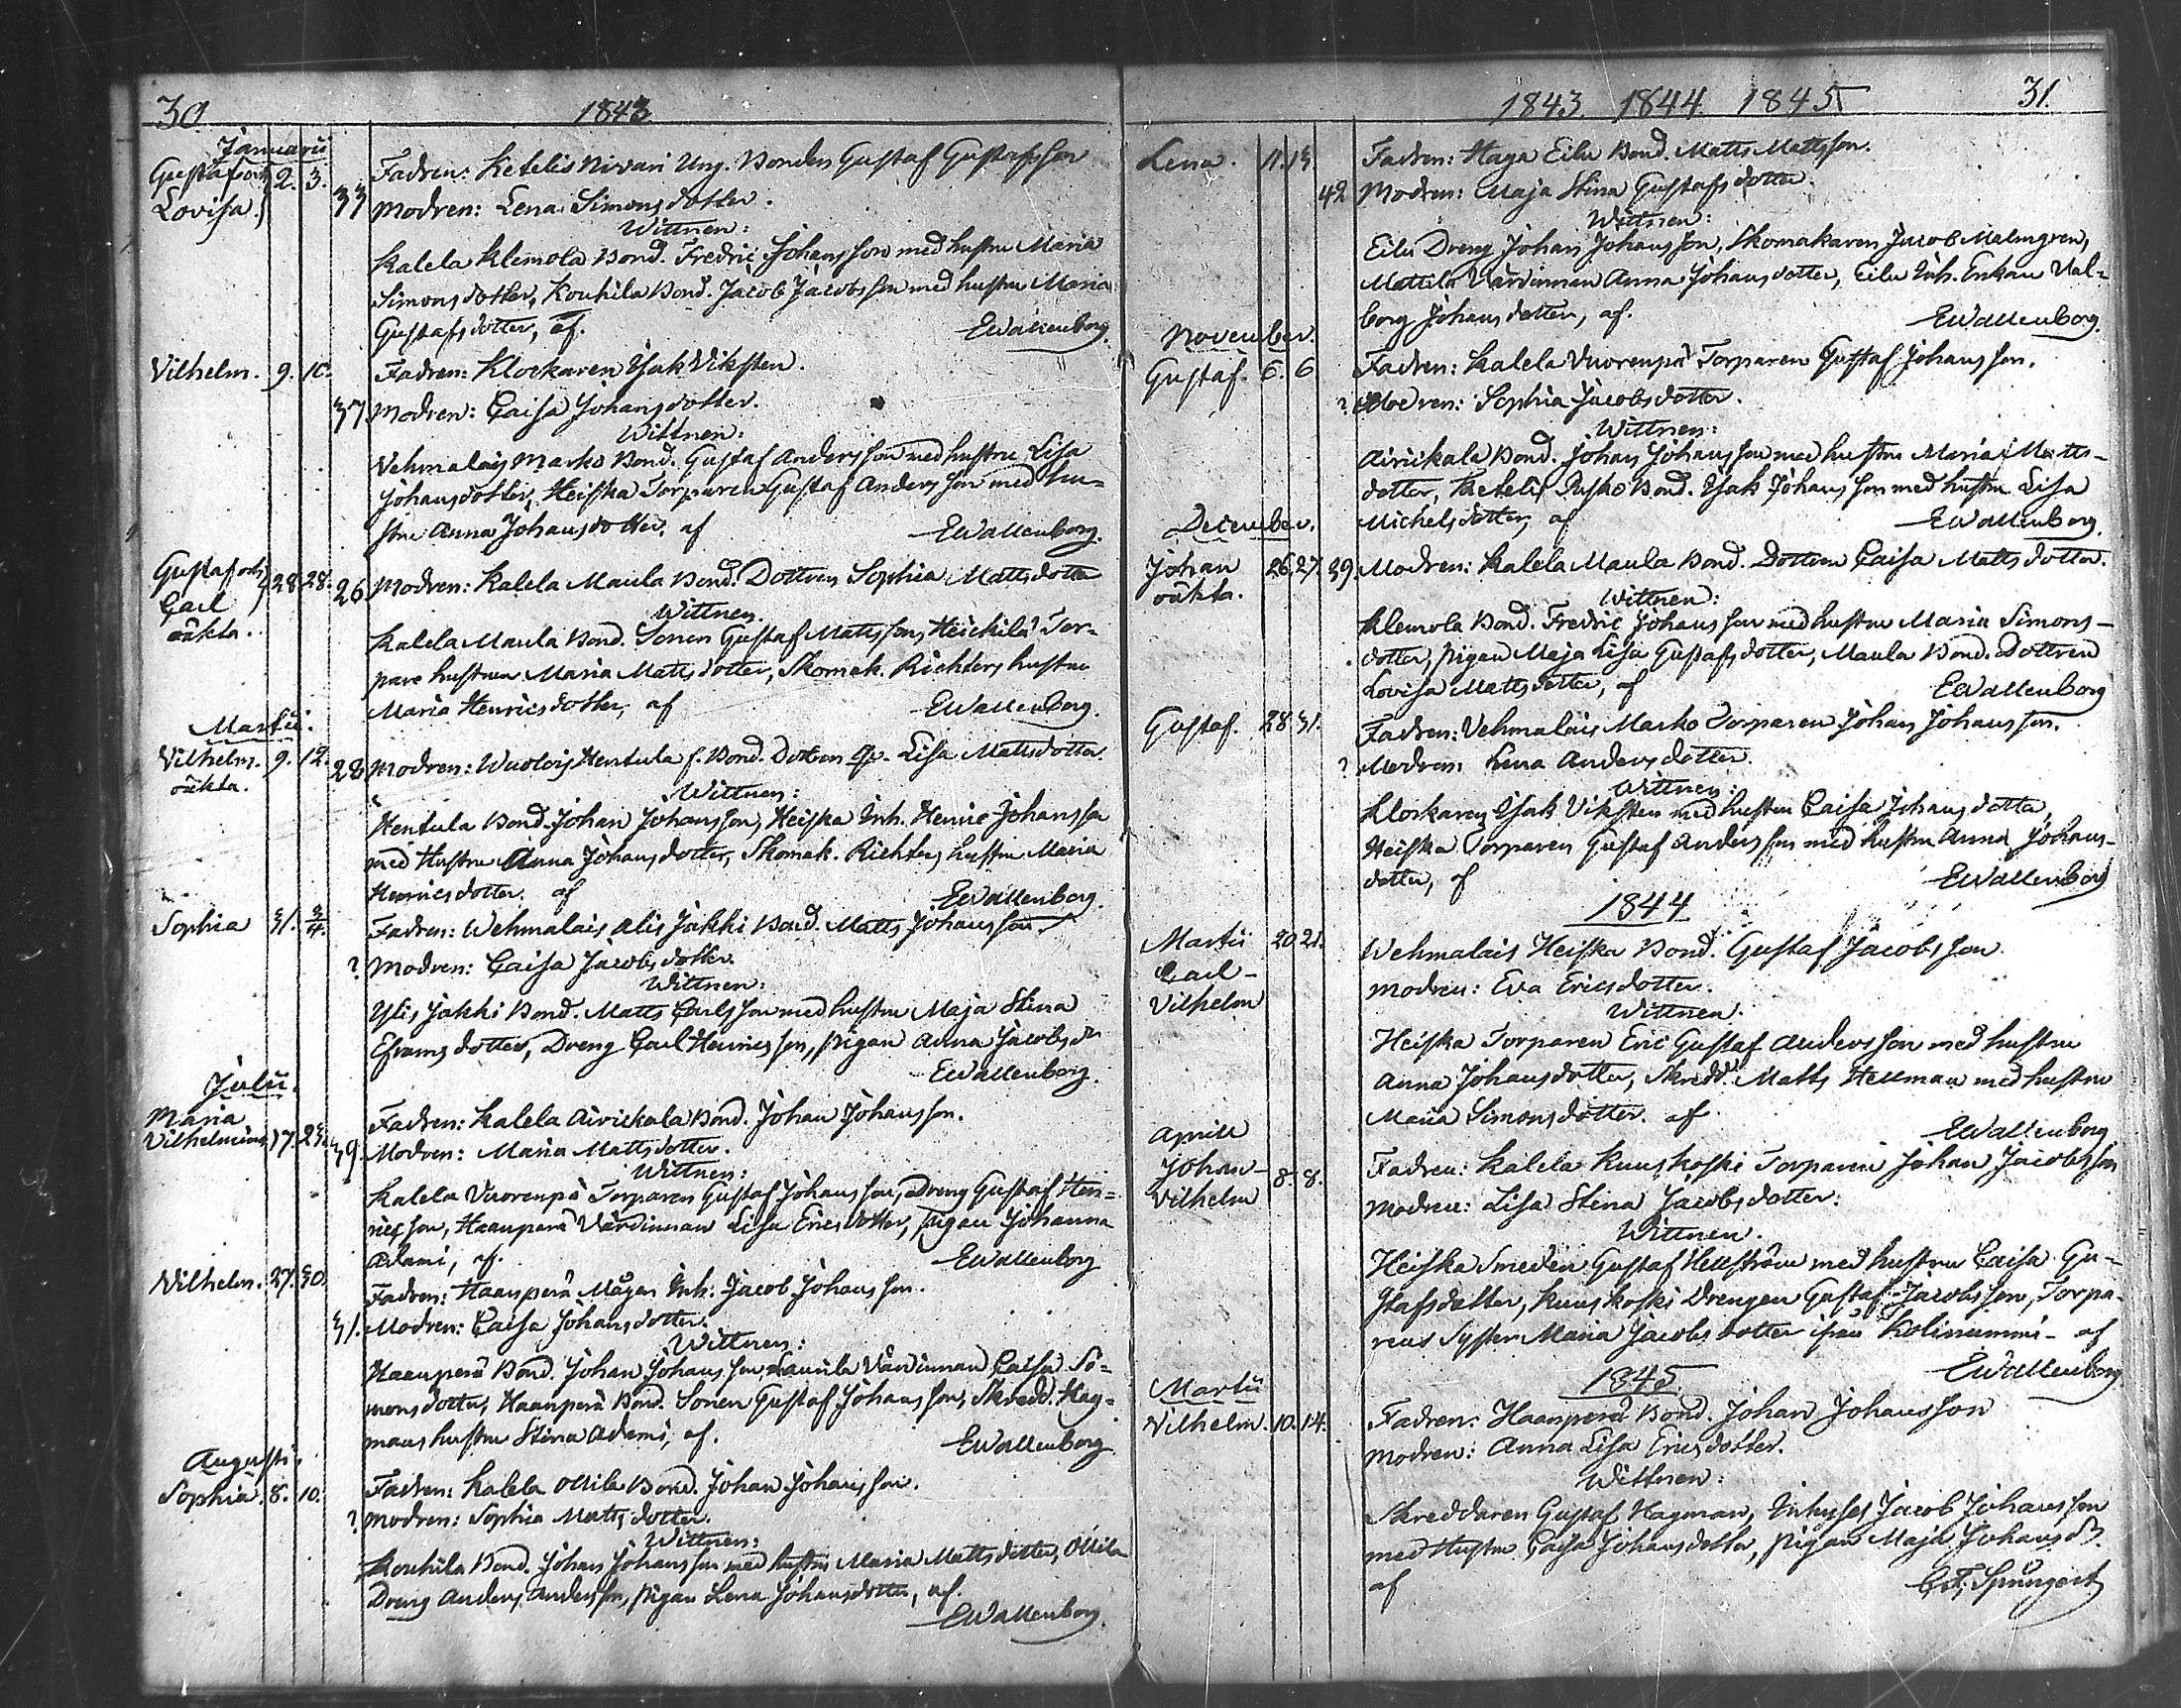 30. 1843
Januarii
Gustaf och 2. 3. Fadren: Ketelis Nivari Ung. Bonden Gustaf Gustafsson
Lovisa. 33 Modren: Lena Simonsdotter.
Wittnen:
Kalela Klemola Bond. Fredric Johansson med hustru Maria
Simonsdotter, Kouhila Bond. Jacob Jacobsson med hustru Maria
Gustafsdotter, af. EWallenborg.
Vilhelm. 9. 10. Fadren: Klockaren Isak Viksten.
37 Modren: Caisa Johansdotter.
Wittnen:
Vehmalais Marko Bond. Gustaf Andersson med hustru Lisa
Johansdotter, Heiska Torparen Gustaf Andersson med hu-
stru Anna Johansdotter, af EWallenborg.
Gustaf och 28 28. 26. Modren: Kalela Maula Bond. Dottren Sophia Mattsdotter
Carl
oäkta. Wittnen.
Kalela Maula Bond. Sonen Gustaf Mattsson, Heickilä Tor-
pare hustrun Maria Mattsdotter, Skomak. Richters hustru
Maria Henricsdotter, af EWallenborg.
Martii.
Vilhelm. 9. 12. 28 Modren: Wuolois Hentula f. Bond. Dottren Lisa Mattsdotter.
oäkta. Wittnen:
Hentula Bond. Johan Johansson, Heiska Inh. Henric Johansson
med Hustru Anna Johansdotter, Skomak. Richters hustru Maria
Henricsdotter. af EWallenborg.
Sophia 31. 3/4. Fadren: Wehmalais Alis Jakki Bond. Matts Johansson.
? Modren: Caisa Jacobsdotter.
Wittnen:
Ylis Jakki Bond. Matts Carlsson med hustru Maja Stina
Eframsdotter, Dreng Carl Henricsson, pigan Anna Jacobsdr
EWallenborg.
Julii.
Maria Fadren: Kalela Airickala Bond. Johan Johansson.
Vilhelmina 17. 23. 39. Modren: Maria Mattsdotter.
Wittnen:
Kalela Vuorenpä Torparen Gustaf Johansson, Dreng Gustaf Hen-
ricsson, Haanperä Värdinnan Lisa Ericsdotter, pigan Johanna
Adami, af. EWallenborg
Vilhelm. 27. 30. Fadren: Haanperä Mågen Inh. Jacob Johansson.
31. Modren: Caisa Johansdotter.
Wittnen:
Haanperä Bond. Johan Johansson, Laurila Värdinnan Caisa Si-
monsdotter, Haanperä Bond. Sonen Gustaf Johansson, Skredd. Hag-
mans hustru Stina Adami, af. EWallenborg
Augusti.
Sophia. 8. 10. Fadren: Kalela Ollila Bond. Johan Johansson.
? Modren: Sophia Mattsdotter.
Wittnen:
Kouhila Bond. Johan Johansson med hustru Maria Mattsdotter, Ollila
Dreng Anders Andersson, pigan Lena Johansdotter, af.
EWallenborg.
1843. 1844. 1845 31.
Lena. 11. 13. Fadren: Haga Eilu Bond. Matts Mattsson.
42 Modren: Maja Stina Gustafsdotter.
Wittnen:
Eilu Dreng Johan Johansson, Skomakaren Jacob Malmgren,
Mattila Värdinnan Anna Johansdotter, Eilu Inh. Enkan Val-
borg Johansdotter, af. EWallenborg.
November.
Gustaf. 6. 6 Fadren: Kalela Vuorenpä Torparen Gustaf Johansson.
? Modren: Sophia Jacobsdotter.
Wittnen:
Airickala Bond. Johan Johansson med hustru Maria Matts-
dotter, Ketelis Pusko Bond. Isak Johansson med hustru Lisa
Michelsdotter, af EWallenborg.
December.
Johan 26. 27. 39. Modren: Kalela Maula Bond. Dottren Caisa Mattsdotter.
oäkta. Wittnen:
Klemola Bond. Fredric Johansson med hustru Maria Simons-
dotter, pigan Maja Lisa Gustafsdotter, Maula Bond. Dottren
Lovisa Mattsdotter, af EWallenborg
Gustaf. 28 31. Fadren: Vehmalais Marko Torparen Johan Johansson.
? Modren: Lena Andersdotter.
Wittnen:
Klockaren Isak Viksten med hustru Caisa Johansdotter,
Heiska Torparen Gustaf Andersson med hustru Anna Johans-
dotter, af EWallenborg
1844
Martii 20 21. Wehmalais Heiska Bond. Gustaf Jacobsson
Carl- Modren: Eva Ericsdotter.
Vilhelm Wittnen.
Heiska Torparen Eric Gustaf Andersson med hustru
Anna Johansdotter, Skredd. Matts Hellman med hustru
Maria Simonsdotter. af
EWallenborg
Aprill
Johan- 8. 8. Fadren: Kalela Kuuskoski Torparen Johan Jacobsson
Vilhelm Modren: Lisa Stina Jacobsdotter.
Wittnen.
Heiska Smeden Gustaf Hellström med hustru Caisa Gu-
stafsdotter, Kuuskoski Drengen Gustaf Jacobsson, Torpa-
rens Syster Maria Jacobsdotter ifrån Kolinummi- af
EWallenborg
1845
Martii
Vilhelm. 10. 14. Fadren: Haanperä Bond. Johan Johansson
Modren: Anna Lisa Ericsdotter.
Wittnen:
Skreddaren Gustaf Hagman, Inhyses Jacob Johansson
med Hustru Caisa Johansdotter, pigan Maja Johansdr.
af